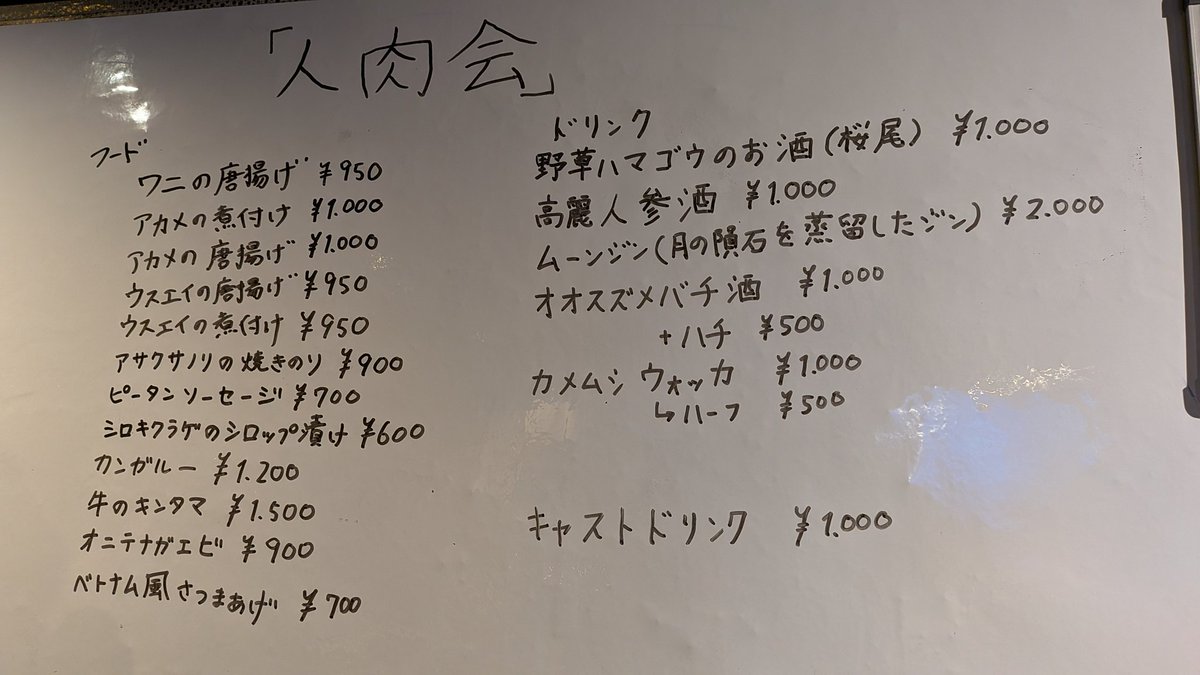 「人肉会」
フード
ワニの唐揚げ ¥950
アカメの煮付け ¥1.000
アカメの唐揚げ ¥1.000
ウスエイの唐揚げ ¥950
ウスエイの煮付け ¥950
アサクサノリの焼きのり ¥900
ピータンソーセージ ¥700
シロキクラゲのシロップ漬け ¥600
カンガルー ¥1.200
牛のキンタマ ¥1.500
オニテナガエビ ¥900
ベトナム風さつまあげ ¥700
ドリンク
野草ハマゴウのお酒(桜尾) ¥1.000
高麗人参酒 ¥1.000
ムーンジン(月の隕石を蒸留したジン) ¥2.000
オオスズメバチ酒 ¥1.000
+ハチ ¥500
カメムシウォッカ ¥1.000
↳ハーフ ¥500
キャストドリンク ¥1.000